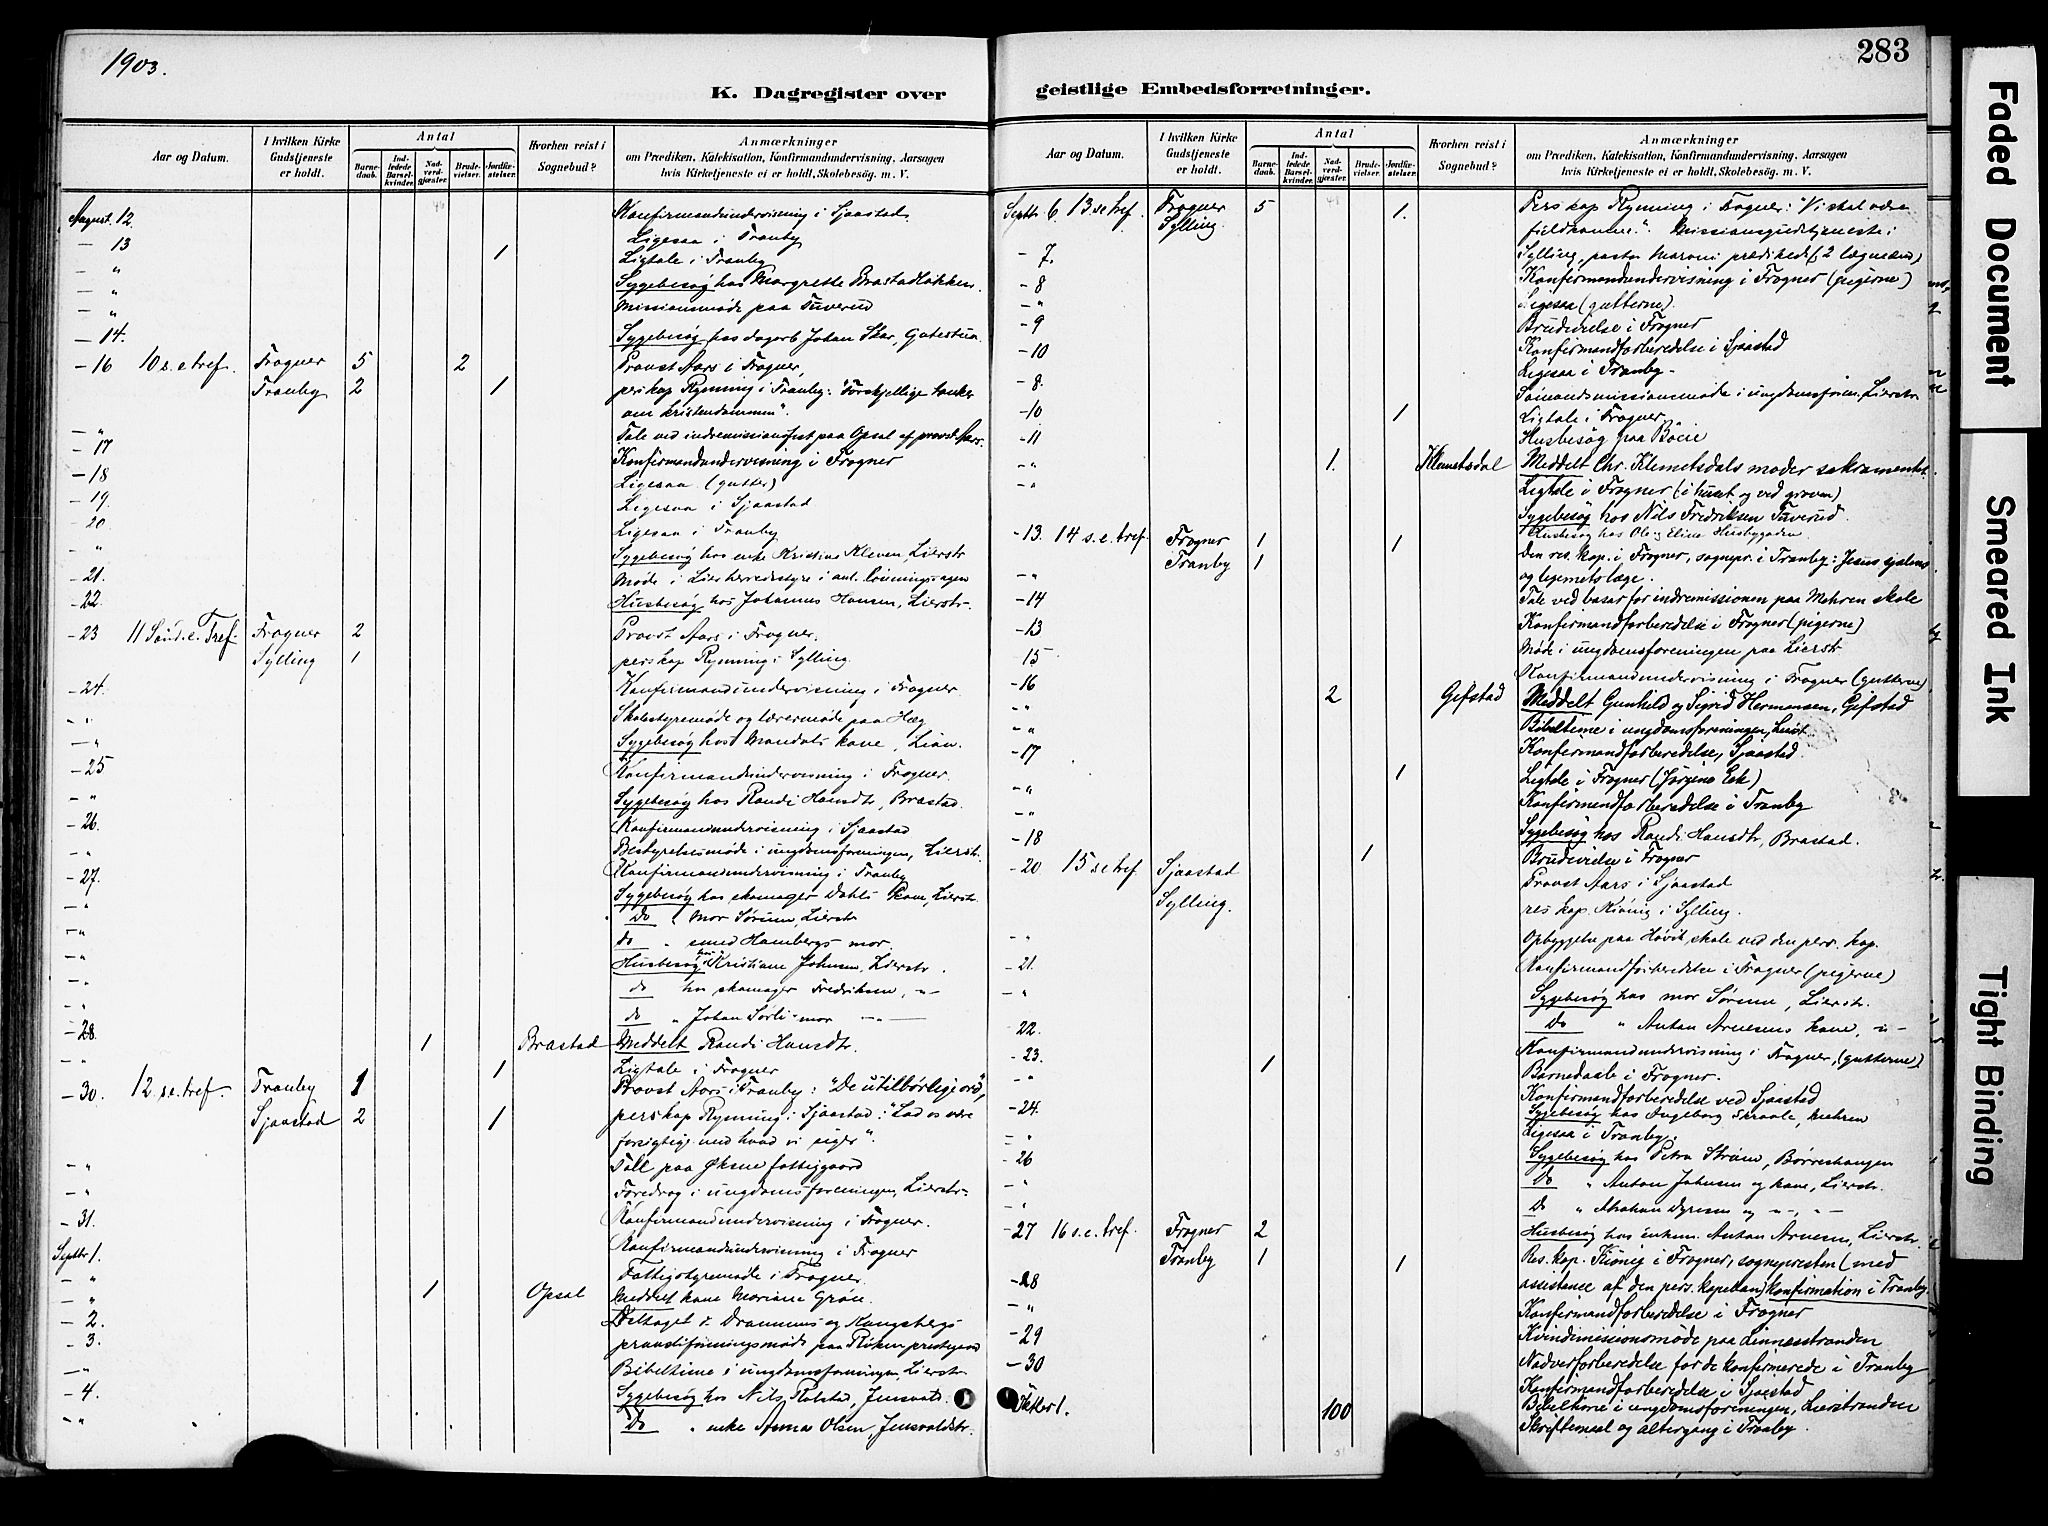 1903.
283
K. Dagregister over geistlige Embedsforretninger.
Aar og Datum. I hvilken Kirke Gudstjeneste er holdt. Antal Barnedaab. Indledede Barselkvinder. Nadverdgjæster. Brudevielser. Jordfæstelser. Hvorhen reist i Sognebud? Anmærkninger om Prædiken, Katekisation, Konfirmandundervisning, Aarsagen hvis Kirketjeneste ei er holdt, Skolebesøg. m. V.
August 12 Konfirmandundervisning i Sjaastad
- 13 Ligesaa i Tranby
- " 1 Ligtale i Tranby
- " Sygebesøg hos Margrethe Brastadløkken.
- " Missionsmøde paa Tuverud
- 14. Sygebesøg hos Johan Skar,
- 16 10 s. e tref. Frogner 5 2 Provst Aars i Frogner,
Tranby 2 1 pers kap Rynning i Tranby: "Forskjellige tanker
om kristendommen".
- " Tale ved indremissionsfest paa Opsal af provst Aars.
- 17 Konfirmandundervisning i Frogner
- 18 Ligesaa (gutter)
- 19. Ligesaa i Sjaastad
- 20 Ligesaa i Tranby
- " Sygebesøg hos enke Kristine Kleven, Lierstr
- 21. Møde i Lier herredsstyre i anl.
- 22. Husbesøg hos Johannes Hansen, Lierstr.
- 23 11 Sønd. e. Tref. Frogner 2 Provst Aars i Frogner.
Sylling 1 pers kap Rynning i Sylling.
- 24. Konfirmandundervisning i Frogner
- " Skolestyremøde og lærermøde paa Hæg
- " Sygebesøg hos Mandals kone, Lian.
- 25 Konfirmandundervisning i Frogner.
- " Sygebesøg hos Randi Hansdtr, Brastad.
- 26. Konfirmandundervisning i Sjaastad
- " Bestyrelsesmøde i ungdomsforeningen, Lierstr.
- 27. Konfirmandundervisning i Tranby
- " Sygebesøg hos skomager Dahls kone, Lierstr.
- " Do " Mor Sørum, Lierstr
- " do " smed Hambergs mor.
- " Husbesøg hos Kristiane Johnsen, Lierstr.
- " do hos skomager Fredriksen, -"-
- " do " Johan Sørli-mor -"-
- 28. 1 Brastad Meddelt Randi Hansdtr.
- " 1 Ligtale i Frogner
- 30. 12 s.e. tref. Tranby 1 Provst Aars i Tranby: "De utilbørlige ord",
Sjaastad 2 1 pers kap Rynning i Sjaastad: "Lad os være
forsigtige med hvad vi siger".
- " Tale paa Øksne fattiggaard
- " Foredrag i ungdomsforeningen, Lierstr.
- 31. Konfirmandundervisning i Frogner.
Septbr 1. Konfirmandundervisning i Frogner
- " Fattigstyremøde i Frogner.
- " 1 Opsal Meddelt kone Mariane Grøn.
- 2. Deltaget i Drammens og Kongsbergs
- 3. paa Røken prestegaard
- " Bibeltime i ungdomsforeningen, Lierstr
- 4. Sygebesøg hos Nils Rolstad, Jensvolds.
- " Do " enke Anna Olsen, Jensvoldstr.
Aar og Datum. I hvilken Kirke Gudstjeneste er holdt. Antal Barnedaab. Indledede Barselkvinder. Nadverdgjæster. Brudevielser. Jordfæstelser. Hvorhen reist i Sognebud? Anmærkninger om Prædiken, Katekisation, Konfirmandundervisning, Aarsagen hvis Kirketjeneste ei er holdt, Skolebesøg. m. V.
Septbr. 6. 13 s e tref. Frogner 5 1. Pers kap Rynning i Frogner: "Vi skal være
Sylling. fuldkomne". Missionsgudstjeneste i
- 7. Sylling, pastor Maroni prædiked, (2 lægmænd)
- 8 Konfirmandundervisning i Frogner (pigerne)
- " Ligesaa (gutterne).
- 9 Brudevielse i Frogner
- 10 Konfirmandforberedelse i Sjaastad
- 8. Ligesaa i Tranby.
- 10 Sømandsmissionsmøde i ungdomsforen., Lierstr.
1 Ligtale i Frogner.
- 11 Husbesøg paa Bøeie
- " 1. Klemetsdal Meddelt Chr. Klemetsdals moder sakramentet.
- " Ligtale i Frogner (i huset og ved graven)
Sygebesøg hos Nils Fredriksen Tuverud.
- 13. 14 s. e. tref. Frogner 1 1 Husbesøg hos Ole & Eline Husbygaden
Tranby 1 Den res. kap. i Frogner, sognepr. i Tranby: Jesus sjælens
- " og legemets læge.
- 14 Tale ved basar for indremissionen paa Mehren skole
- 13 Konfirmandforberedelse i Frogner (pigerne)
- 15 Møde i ungdomsforeningen paa Lierstr
- 16 Konfirmandundervisning i Frogner (gutterne)
- " 2 Gifstad Meddelt Gunhild og Sigrid Hermansen, Gifstad
- " Bibeltime i ungdomsforeningen, Lierst
- 17 Konfirmandforberedelse, Sjaastad.
- " 1 Ligtale i Frogner (Jørgine Eek)
- " Konfirmandforberedelse i Tranby
- 18 Sygebesøg hos Randi Hansdtr, Brastad.
- 20 15 s e tref Sjaastad 1 Brudevielse i Frogner
Sylling. Provst Aars i Sjaastad
res kap. Kiønig i Sylling.
- " Opbyggelse paa Høvik skole ved den pers. kap.
- 21. Konfirmandforberedelse i Frogner (pigerne)
- " Sygebesøg hos mor Sørum, Lierstr.
22. Do " Anton Arnesens kone, -"-
- 23. 1 Konfirmandundervisning i Frogner, (gutterne)
- " Barnedaab i Frogner.
- 24. Konfirmandforberedelse ved Sjaastad
Sygebesøg hos Ingeborg Mehren
- " Ligesaa i Tranby.
- 26 Sygebesøg hos Petra Strøm, Børreshangen
- " Do " Anton Johnsen og kone, Lierstr.
- " Do " Abraham og -"-, -"-
- 27 16 s.e. tref. Frogner 2 Husbesøg hos enkem. Anton Arnesen, Lierstr.
Tranby 1 1 Res. kap. Kiønig i Frogner, sognepresten (med
- 28 assistance af den pers. kapellan) konfirmation i Tranby
- " Konfirmandforberedelse i Frogner
- 29 Kvindemissionsmøde paa Linnesstranden
- 30 Nadverforberedelse for de konfirmerede i Tranby
Konfirmandforberedelse i Sjaastad
Oktbr 1. 100 Bibeltime i ungdomsforeningen, Lierstranden
Skriftemaal og altergang i Tranby.
Faded Document
Smeared Ink
Tight Binding